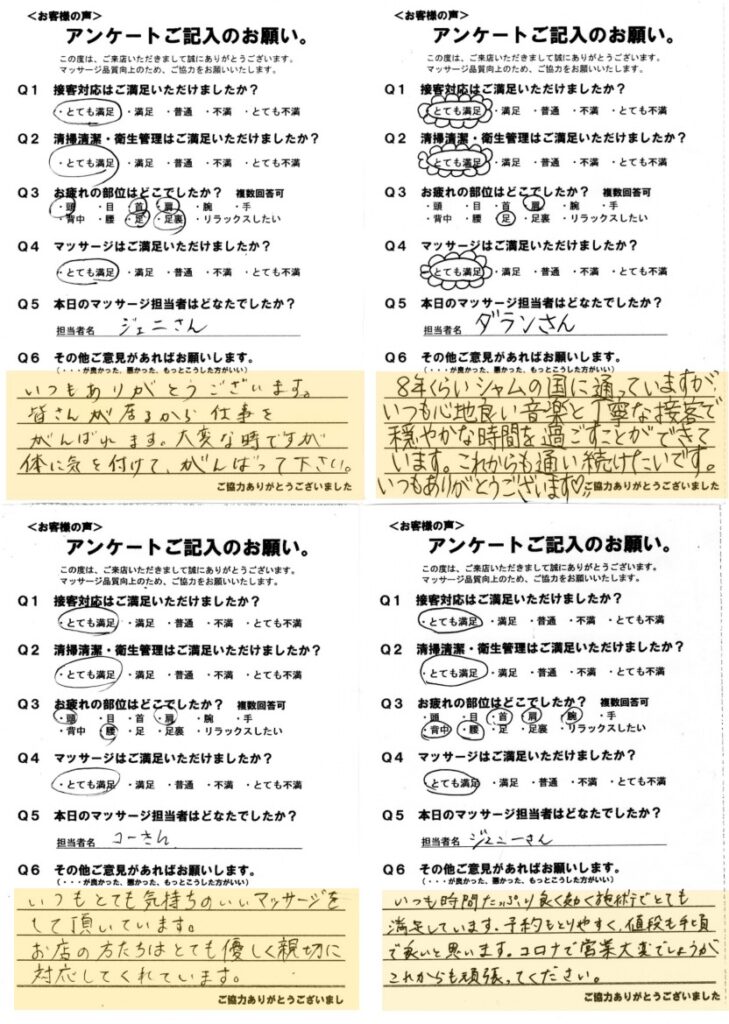 <お客様の声>
アンケートご記入のお願い。
この度は、ご来店いただきまして誠にありがとうございます。
マッサージ品質向上のため、ご協力をお願いいたします。
Q1 接客対応はご満足いただけましたか?
・とても満足 ・満足 ・普通 ・不満 ・とても不満
Q2 清掃清潔・衛生管理はご満足いただけましたか?
・とても満足 ・満足 ・普通 ・不満 ・とても不満
Q3 お疲れの部位はどこでしたか? 複数回答可
・頭 ・目 ・首 ・肩 ・腕 ・手
・背中 ・腰 ・足 ・足裏 ・リラックスしたい
Q4 マッサージはご満足いただけましたか?
・とても満足 ・満足 ・普通 ・不満 ・とても不満
Q5 本日のマッサージ担当者はどなたでしたか?
担当者名 ジェニさん
Q6 その他ご意見があればお願いします。
(・・・が良かった、悪かった、もっとこうした方がいい)
いつもありがとうございます。
皆さんが居るから仕事を
がんばれます。大変な時ですが
体に気を付けて、がんばって下さい。
ご協力ありがとうございました
<お客様の声>
アンケートご記入のお願い。
この度は、ご来店いただきまして誠にありがとうございます。
マッサージ品質向上のため、ご協力をお願いいたします。
Q1 接客対応はご満足いただけましたか?
・とても満足 ・満足 ・普通 ・不満 ・とても不満
Q2 清掃清潔・衛生管理はご満足いただけましたか?
・とても満足 ・満足 ・普通 ・不満 ・とても不満
Q3 お疲れの部位はどこでしたか? 複数回答可
・頭 ・目 ・首 ・肩 ・腕 ・手
・背中 ・腰 ・足 ・足裏 ・リラックスしたい
Q4 マッサージはご満足いただけましたか?
・とても満足 ・満足 ・普通 ・不満 ・とても不満
Q5 本日のマッサージ担当者はどなたでしたか?
担当者名 ダランさん
Q6 その他ご意見があればお願いします。
(・・・が良かった、悪かった、もっとこうした方がいい)
8年くらいシャムの国に通っていますが、
いつも心地良い音楽と丁寧な接客で
穏やかな時間を過ごすことができて
います。これからも通い続けたいです。
いつもありがとうございます♡
ご協力ありがとうございました
<お客様の声>
アンケートご記入のお願い。
この度は、ご来店いただきまして誠にありがとうございます。
マッサージ品質向上のため、ご協力をお願いいたします。
Q1 接客対応はご満足いただけましたか?
・とても満足 ・満足 ・普通 ・不満 ・とても不満
Q2 清掃清潔・衛生管理はご満足いただけましたか?
・とても満足 ・満足 ・普通 ・不満 ・とても不満
Q3 お疲れの部位はどこでしたか? 複数回答可
・頭 ・目 ・首 ・肩 ・腕 ・手
・背中 ・腰 ・足 ・足裏 ・リラックスしたい
Q4 マッサージはご満足いただけましたか?
・とても満足 ・満足 ・普通 ・不満 ・とても不満
Q5 本日のマッサージ担当者はどなたでしたか?
担当者名 コーさん
Q6 その他ご意見があればお願いします。
(・・・が良かった、悪かった、もっとこうした方がいい)
いつもとても気持ちのいいマッサージを
して頂いています。
お店の方たちはとても優しく親切に
対応してくれています。
ご協力ありがとうございまし
<お客様の声>
アンケートご記入のお願い。
この度は、ご来店いただきまして誠にありがとうございます。
マッサージ品質向上のため、ご協力をお願いいたします。
Q1 接客対応はご満足いただけましたか?
・とても満足 ・満足 ・普通 ・不満 ・とても不満
Q2 清掃清潔・衛生管理はご満足いただけましたか?
・とても満足 ・満足 ・普通 ・不満 ・とても不満
Q3 お疲れの部位はどこでしたか? 複数回答可
・頭 ・目 ・首 ・肩 ・腕 ・手
・背中 ・腰 ・足 ・足裏 ・リラックスしたい
Q4 マッサージはご満足いただけましたか?
・とても満足 ・満足 ・普通 ・不満 ・とても不満
Q5 本日のマッサージ担当者はどなたでしたか?
担当者名 ジェニーさん
Q6 その他ご意見があればお願いします。
(・・・が良かった、悪かった、もっとこうした方がいい)
いつも時間たっぷり良く効く施術でとても
満足しています。予約もとりやすく、値段も手頃
で良いと思います。コロナで営業大変でしょうが
これからも頑張ってください。
ご協力ありがとうございました